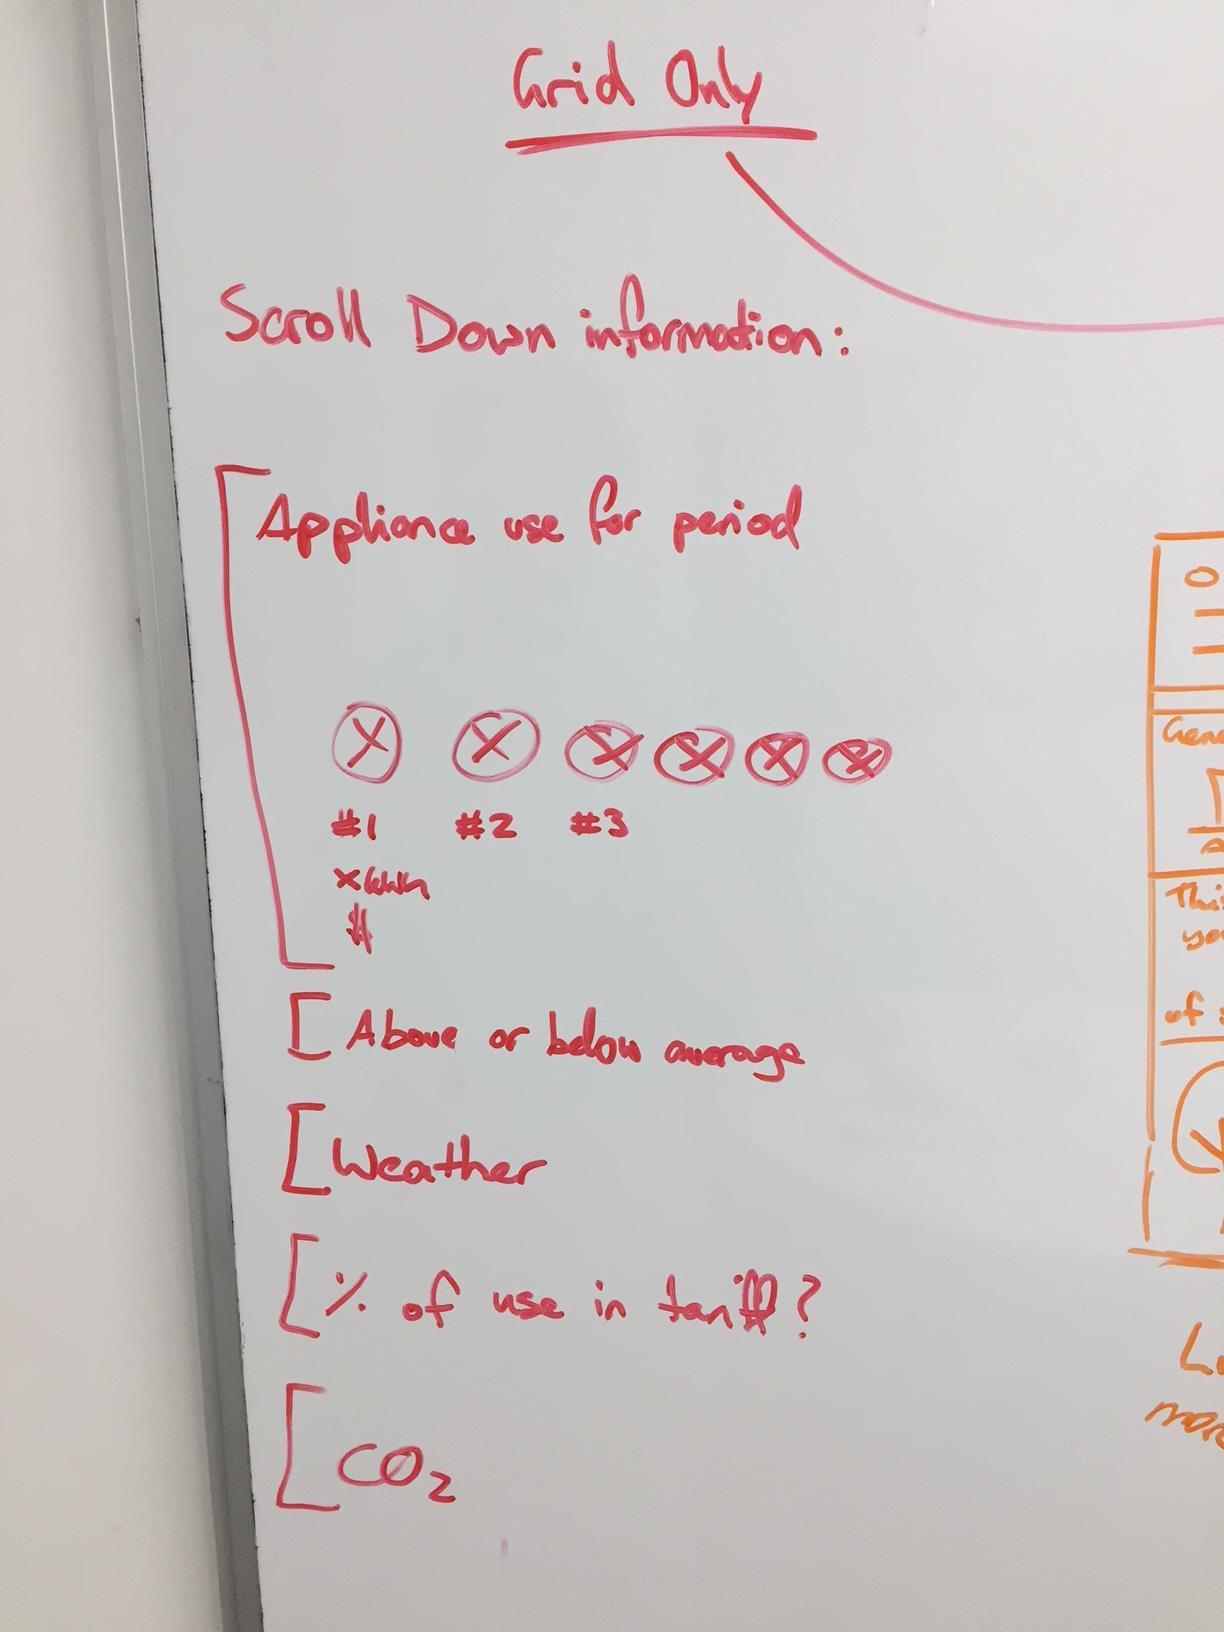 Grid Only
Scroll Down information:
Appliance use for period
#1 #2 #3
x kwh
$
[Above or below average
[Weather
[% of use in tariff?
[CO₂
Gene
This
you
of
more